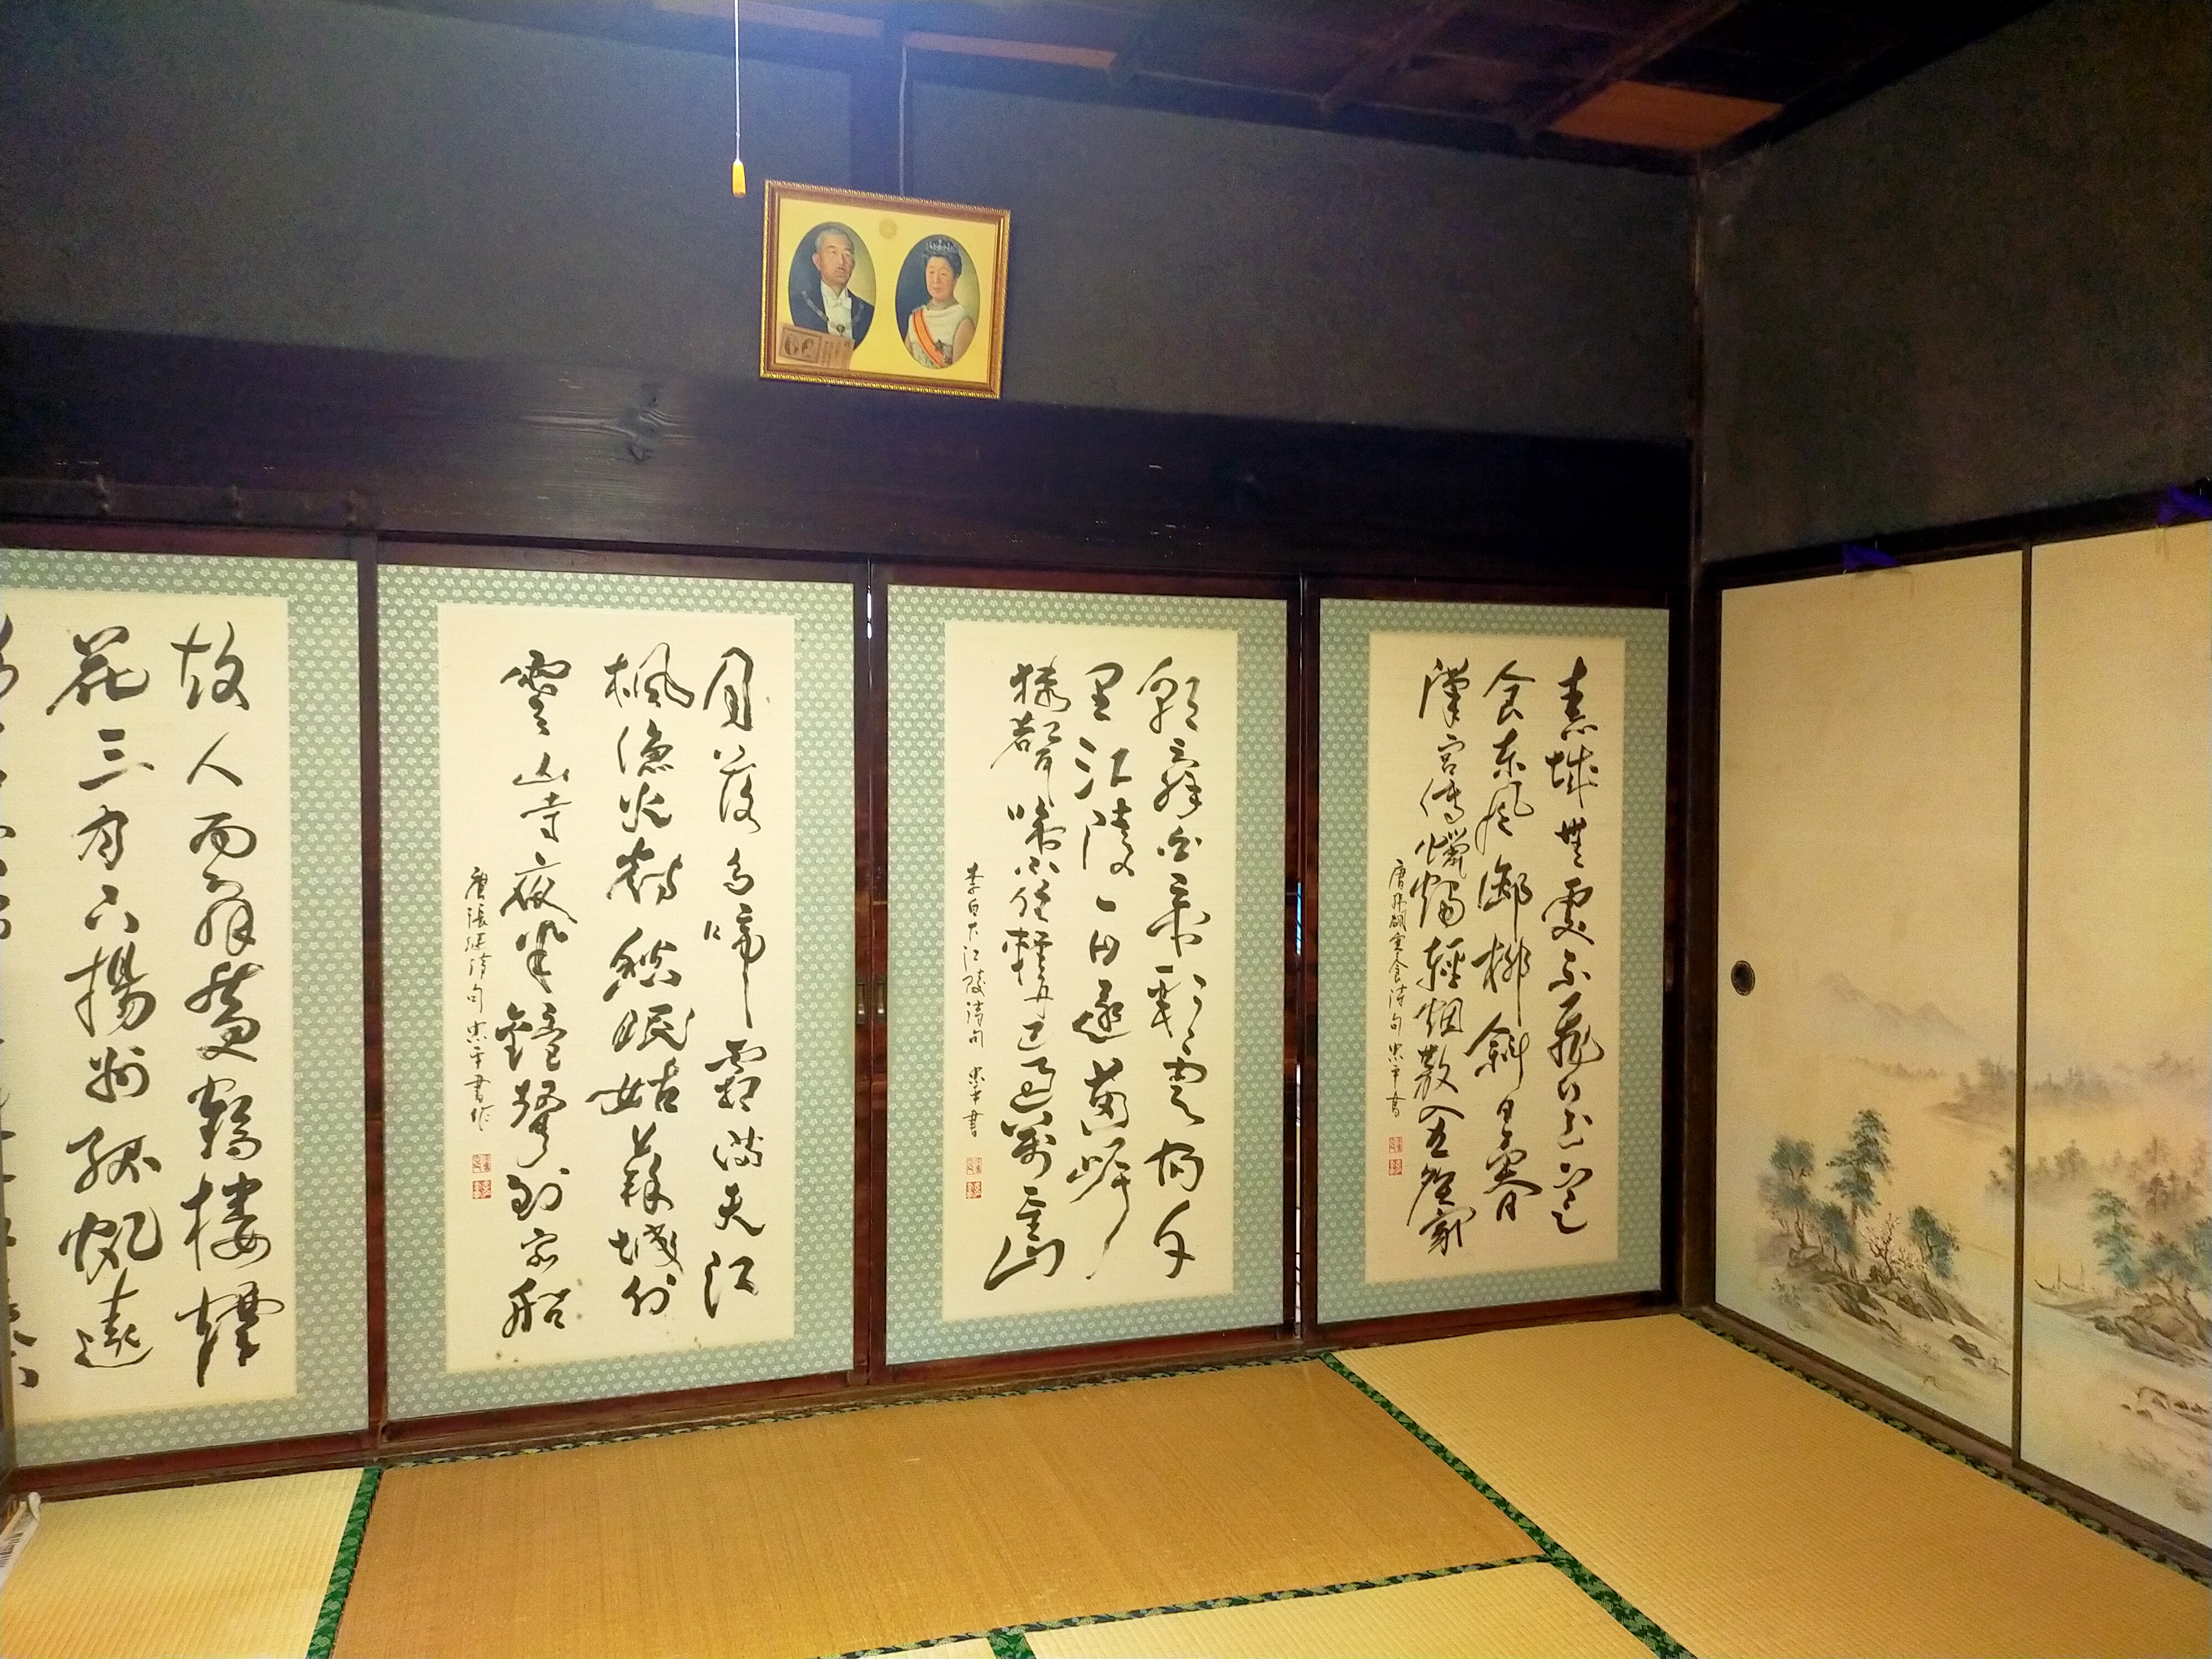 春城無處不飛花寒
食東風御柳斜日暮
漢宮傳蠟燭輕烟散入五侯家
唐韓翃寒食詩句 忠平書
朝辭白帝彩雲間千
里江陵一日還兩岸
猿聲啼不住輕舟已過萬重山
李白下江陵詩句 忠平書
月落烏啼霜滿天江
楓漁火對愁眠姑蘇城外
寒山寺夜半鐘聲到客船
唐張継詩句 忠平書作
故人西辭黄鶴樓煙
花三月下揚州孤帆遠